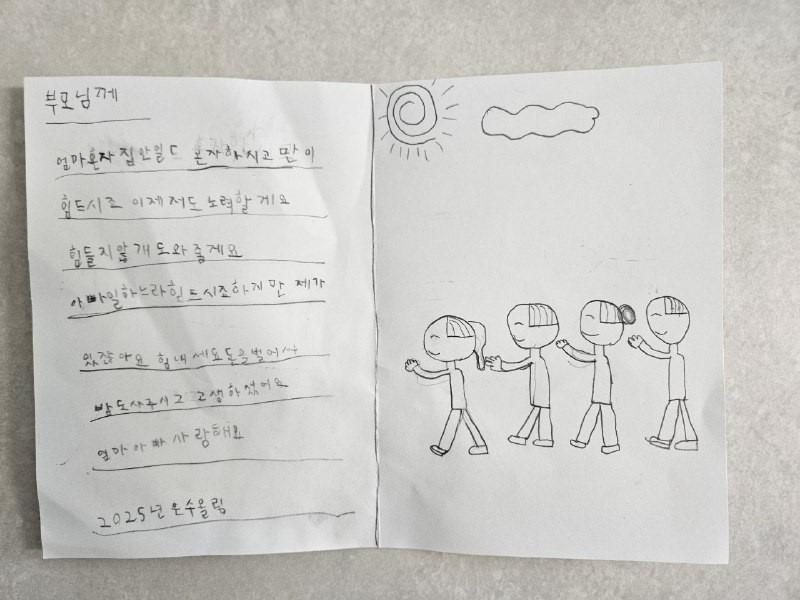 부모님께
엄마혼자 집안일ㄷ 혼자하시고 많이
힘드시죠 이제저도 노력할게요
힘들지않개 도와줄게요
아빠일하느라힘드시죠하지만 제가
있잖아요 힘내세요돈을벌어서
밥도사주시고 고생하셨어요
엄마아빠사랑해요
2025년은수올림